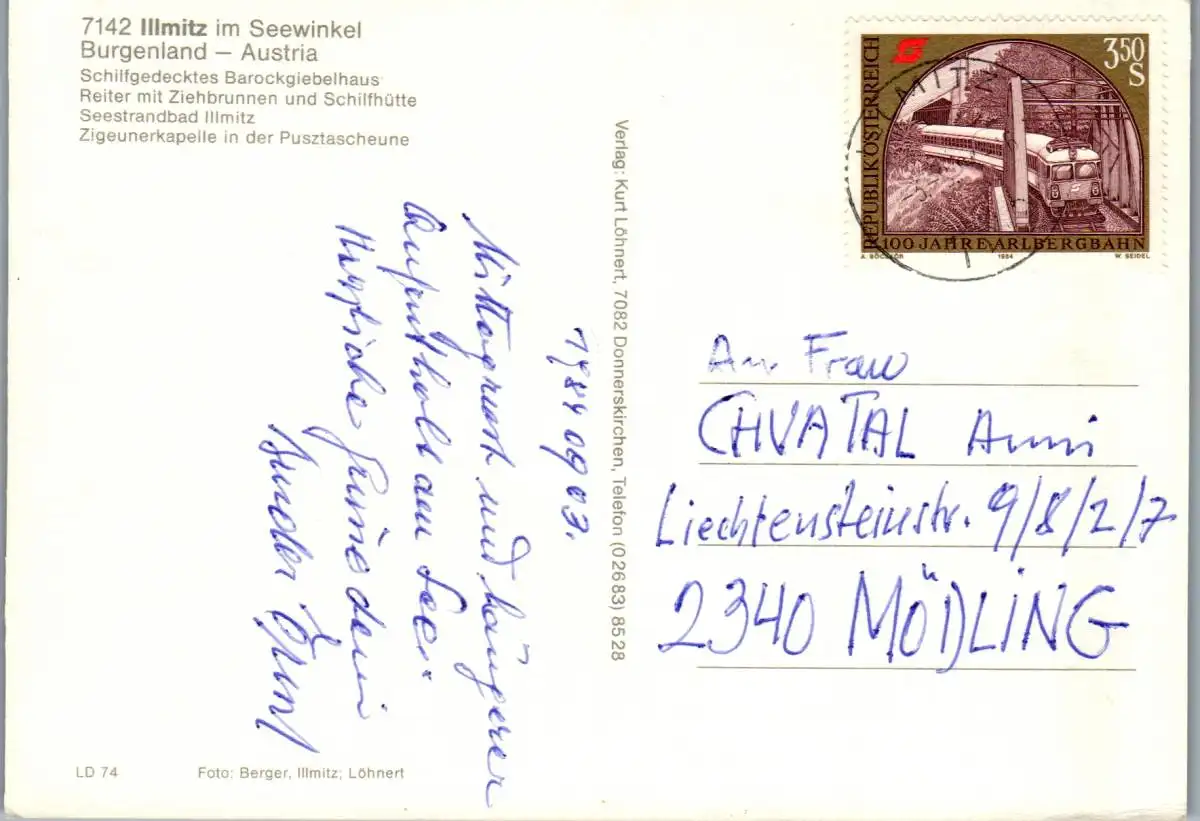 7142 Illmitz im Seewinkel
Burgenland – Austria
Schilfgedecktes Barockgiebelhaus
Reiter mit Ziehbrunnen und Schilfhütte
Seestrandbad Illmitz
Zigeunerkapelle in der Pusztascheune
1984 09 03.
Mittagsrast und längerer
Aufenthalt am See.
Herzliche Grüße dein
Bruder Ernst
LD 74
Foto: Berger, Illmitz; Löhnert
Verlag: Kurt Löhnert, 7082 Donnerskirchen, Telefon (02683) 8528
REPUBLIK ÖSTERREICH
3⁵⁰
S
100 JAHRE ARLBERGBAHN
A. BÖCSKÖR 1984 W. SEIDEL
An Frau
CHVATAL Anni
Liechtensteinstr. 9/8/2/7
2340 MÖDLING